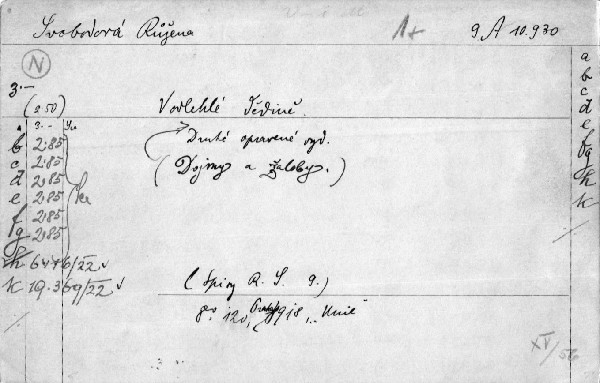 Svobodová Růžena 1x 9 A 10.930
N
3.-
(2.50) V odlehlé dědině.
a 3.-
b 2.85 Druhé opravené vyd.
c 2.85 (Dojmy a žaloby.)
d 2.85
e 2.85
f 2.85
g 2.85
h 6476/22
k 19.369/22 (Spisy R. S. 9.)
8° 120, 1918, "Unie"
a
b
c
d
e
f
g
h
k
XV/56